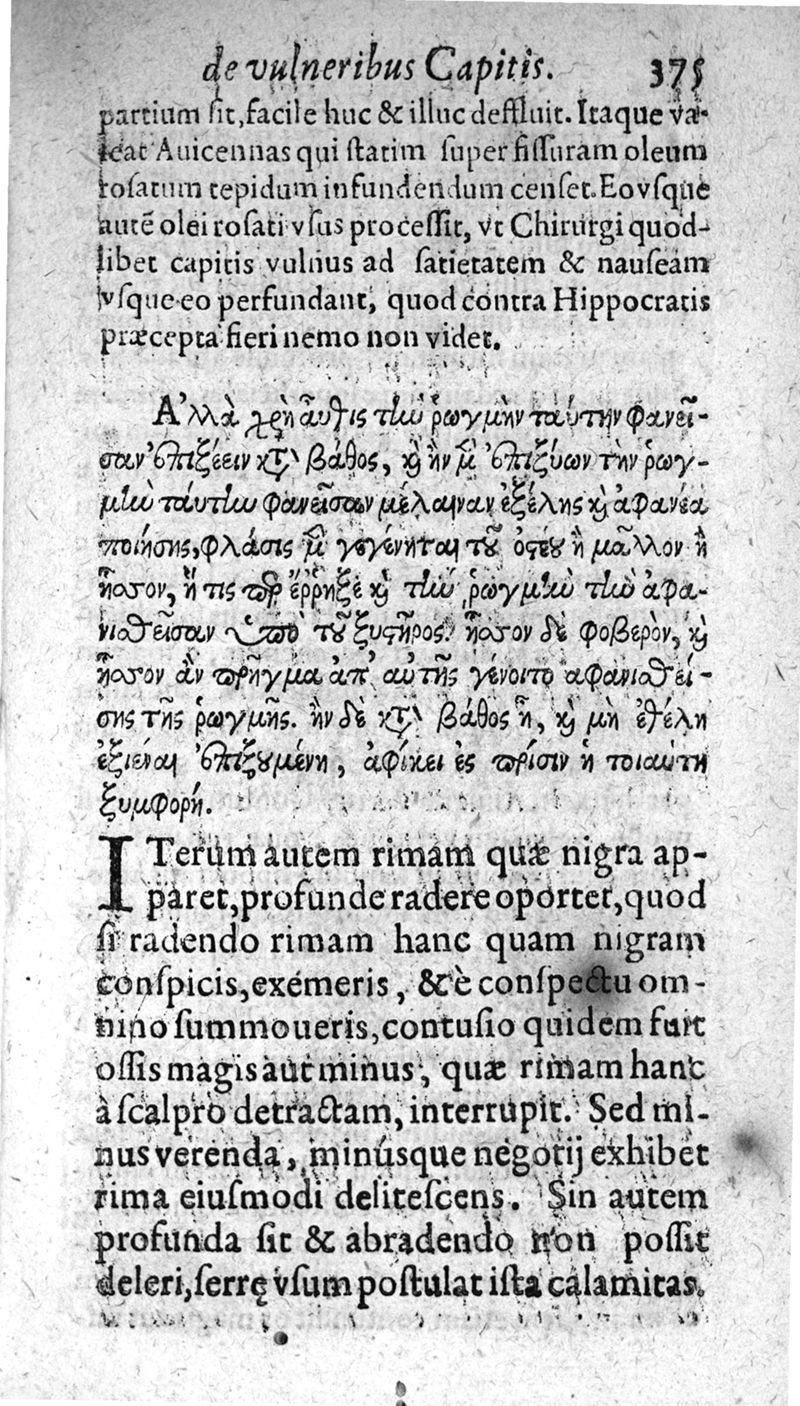 de vulneribus Capitis. 375
partium sit, facile huc & illuc deffluit. Itaque va-
leat Auicennas qui statim super fissuram oleum
rosatum tepidum infundendum censet. Eovsque
autē olei rosati vsus processit, vt Chirurgi quod-
libet capitis vulnus ad satietatem & nauseam
vsque eo perfundant, quod contra Hippocratis
præcepta fieri nemo non videt.
Α᾿λλὰ χρὴ αὖθις τὴν ῥωγμὴν ταύτην φανεῖ-
σαν ἐπιξέειν κατὰ βάθος, καὶ ἢν μὲν ἐπιξύων τὴν ῥωγ-
μὴν ταύτην φανεῖσαν μέλαιναν ἐξέλης καὶ ἀφανέα
ποιήσης, φλάσις μὲν γεγένηται τοῦ ὀστέου ἢ μᾶλλον ἢ
ἧσσον, ἥ τις περ ἔῤῥηξε καὶ τὴν ῥωγμὴν τὴν ἀφα-
νισθεῖσαν ὑπὸ τοῦ ξυστῆρος. ἧσσον δὲ φοβερὸν, καὶ
ἧσσον ἂν πρῆγμα ἀπ᾿ αὐτῆς γένοιτο ἀφανισθεί-
σης τῆς ῥωγμῆς. ἢν δὲ κατὰ βάθος ᾖ, καὶ μὴ ἐθέλη
ἐξιέναι ἐπιξυομένη, ἀφίκει ἐς πρίσιν ἡ τοιαύτη
ξυμφορή.
ITerum autem rimam quæ nigra ap-
paret, profunde radere oportet, quod
si radendo rimam hanc quam nigram
conspicis, exémeris, & è conspectu om-
nino summoueris, contusio quidem fuit
ossis magis aut minus, quæ rimam hanc
à scalpro detractam, interrupit. Sed mi-
nus verenda, minúsque negotij exhibet
rima eiusmodi delitescens. Sin autem
profunda sit & abradendo non possit
deleri, serrę vsum postulat ista calamitas.